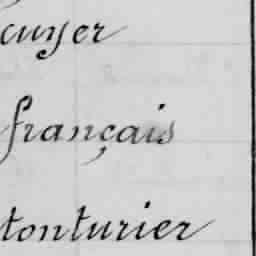 cuyer
français
tonturier